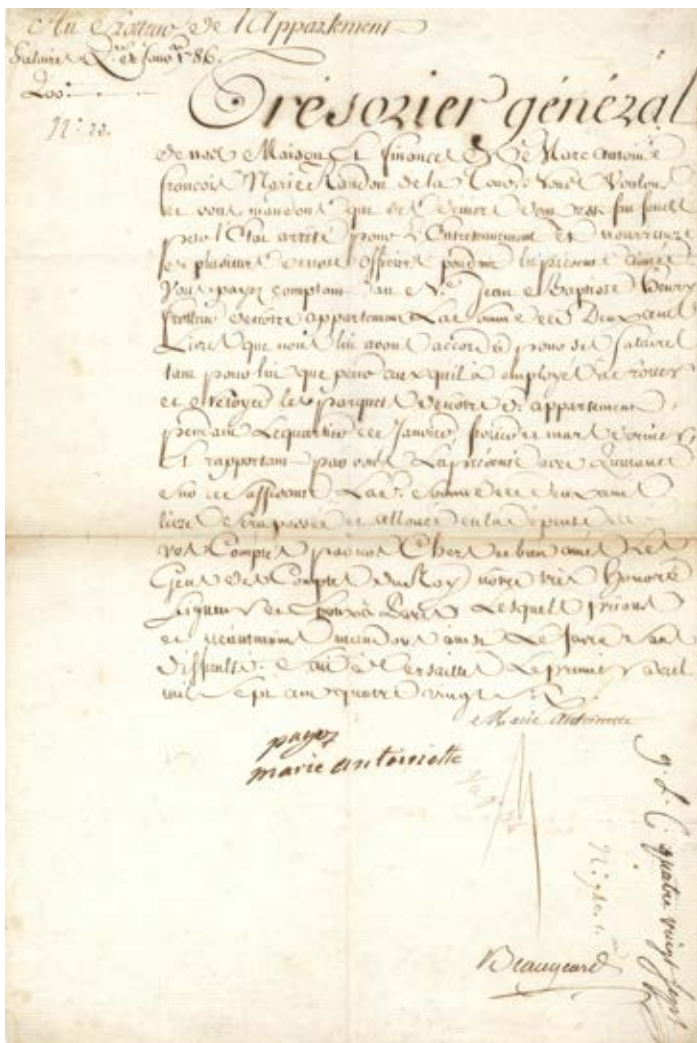 Au frotteur de l'Appartement
Salaires Qer. de Janv. 1786.
200
N.° 20.
Trésorier général
de nos Maison et finances Me Marc Antoine
françois Marie Randon de la Tour. Nous Voulons
et vous mandons que des deniers de
par l'Etat arrêté pour l'Entretennement et nourriture
de plusieurs de nos Officiers pendant la présente année
Vous payez comptant au Sr. Jean Baptiste henry
frotteur de notre appartement La somme de Deux cent
Livres que nous lui avons accordés pour ses salaires
tant pour lui que pour ceux qu'il a employé à frotter
et nétoyer les parquets de notre d. appartement
pendant Le quartier de Janvier, février et mars derniers
Et rapportant par vous La présente avec Quittance
sur ce suffisante Lad. Somme de deux cent
livres sera passée et allouée en la dépense de
vos Comptes par nos Chers et bien amés Les
Gens des Comptes du Roy notre très honoré
Seigneur et Epoux à Paris Lesquels prions
et néantmoins mandons ainsi Le faire sans
difficulté. fait à Versailles Le premier avril
mil sept cent quatre vingt
Marie Antoinette
payez
marie antoinette
Beaugeard
g. L. C. quatre vingt sept